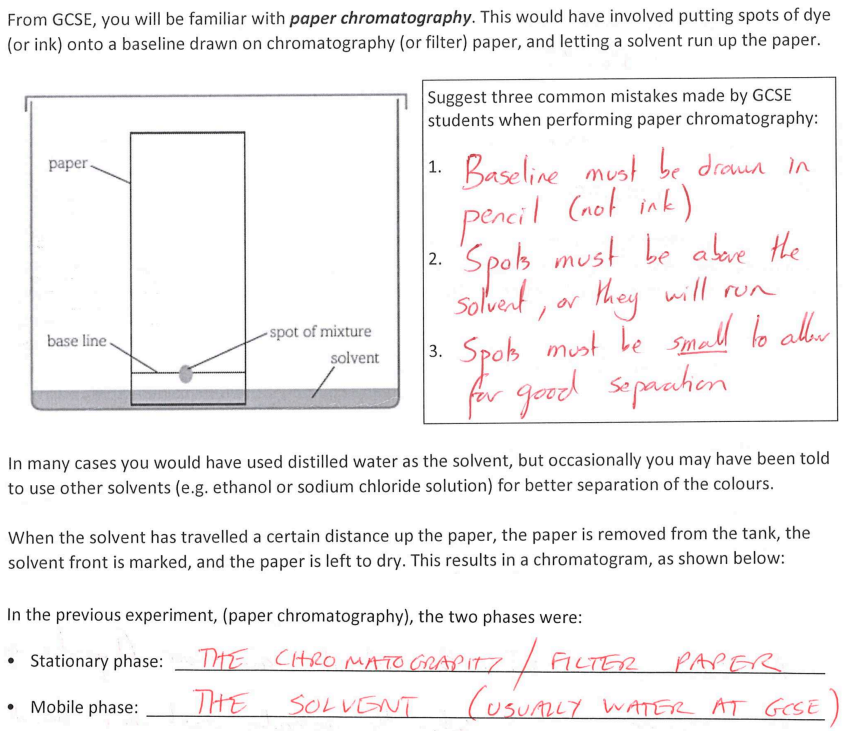 From GCSE, you will be familiar with paper chromatography. This would have involved putting spots of dye
(or ink) onto a baseline drawn on chromatography (or filter) paper, and letting a solvent run up the paper.
paper
base line
spot of mixture
solvent
Suggest three common mistakes made by GCSE
students when performing paper chromatography:
1. Baseline must be drawn in
pencil (not ink)
2. Spots must be above the
solvent, or they will run
3. Spots must be small to allow
for good separation
In many cases you would have used distilled water as the solvent, but occasionally you may have been told
to use other solvents (e.g. ethanol or sodium chloride solution) for better separation of the colours.
When the solvent has travelled a certain distance up the paper, the paper is removed from the tank, the
solvent front is marked, and the paper is left to dry. This results in a chromatogram, as shown below:
In the previous experiment, (paper chromatography), the two phases were:
• Stationary phase: THE CHROMATOGRAPHY / FILTER PAPER
• Mobile phase: THE SOLVENT (USUALLY WATER AT GCSE)